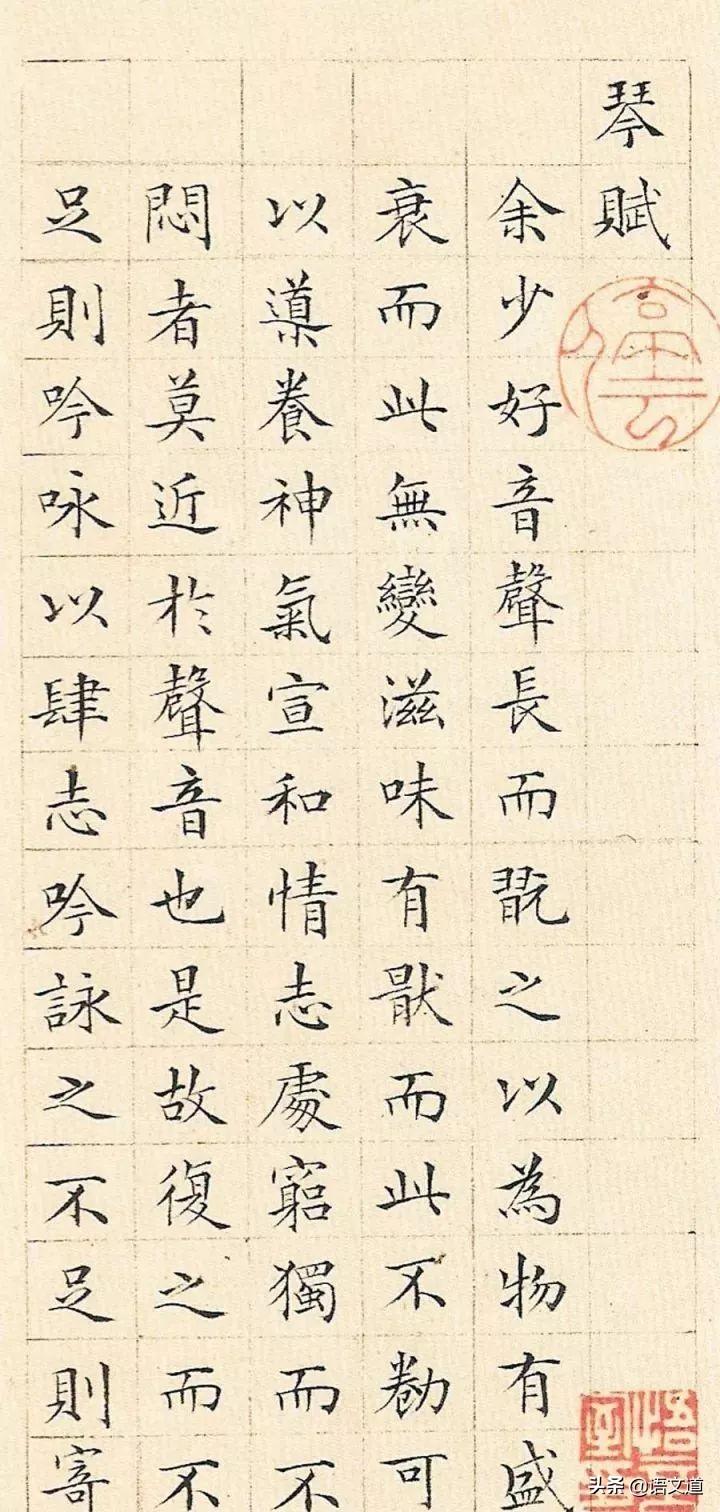 琴賦
余少好音聲長而翫之以為物有盛
衰而此無變滋味有猒而此不勌可
以導養神氣宣和情志處窮獨而不
悶者莫近於聲音也是故復之而不
足則吟咏以肆志吟詠之不足則寄
头条 @语文道